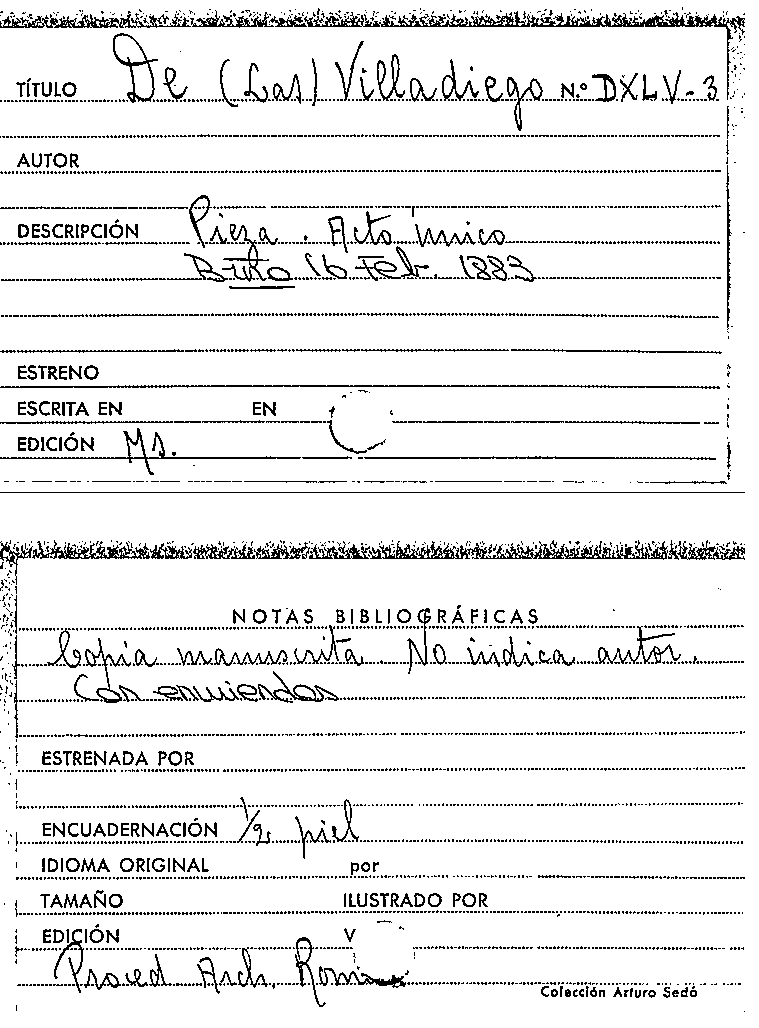 TÍTULO De (Las) Villadiego N.º DXLV-3
AUTOR
DESCRIPCIÓN Pieza. Acto único
16 Feb. 1883
ESTRENO
ESCRITA EN EN
EDICIÓN Ms.
NOTAS BIBLIOGRÁFICAS
Copia manuscrita. No indica autor.
Con enmiendas
ESTRENADA POR
ENCUADERNACIÓN 1/2 piel
IDIOMA ORIGINAL por
TAMAÑO ILUSTRADO POR
EDICIÓN V
Proced Arch.
Colección Arturo Sedó